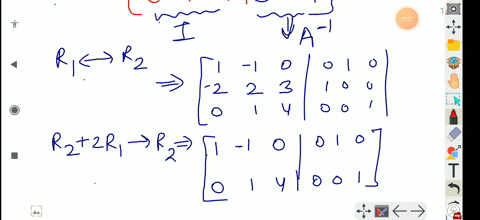 I A⁻¹
R₁ ↔ R₂
⇒ [ 1 -1 0 | 0 1 0
-2 2 3 | 1 0 0
0 1 4 | 0 0 1
R₂+2R₁ → R₂ ⇒ [ 1 -1 0 | 0 1 0
0 1 4 | 0 0 1 ]
T